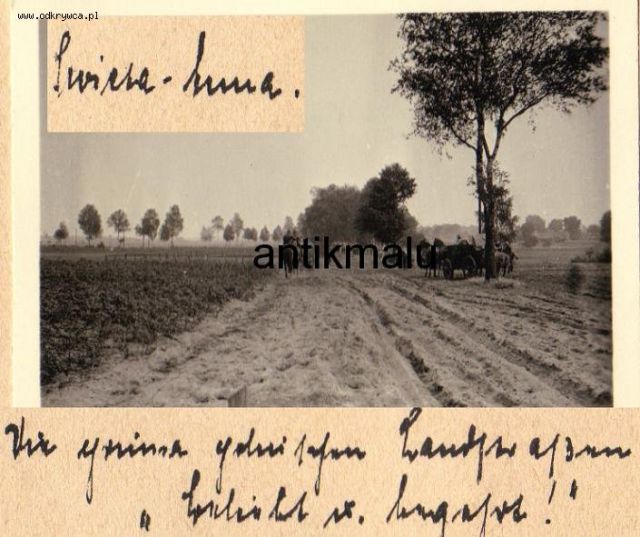 www.odkrywca.pl
Swieta - Anna.
antikmalu
Die prima polnischen Landstraßen
„beliebt u. begehrt!“